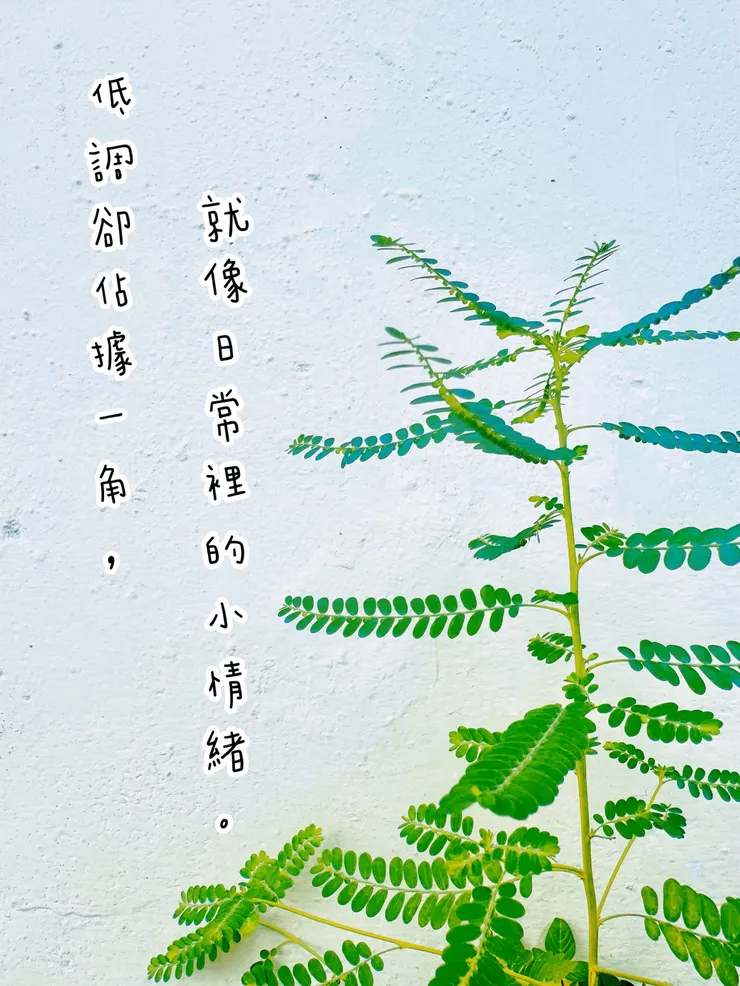 低調卻佔據一角，
就像日常裡的小情緒。